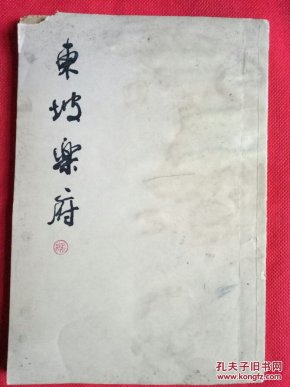 東坡樂府
孔夫子旧书网
www.kongfz.com